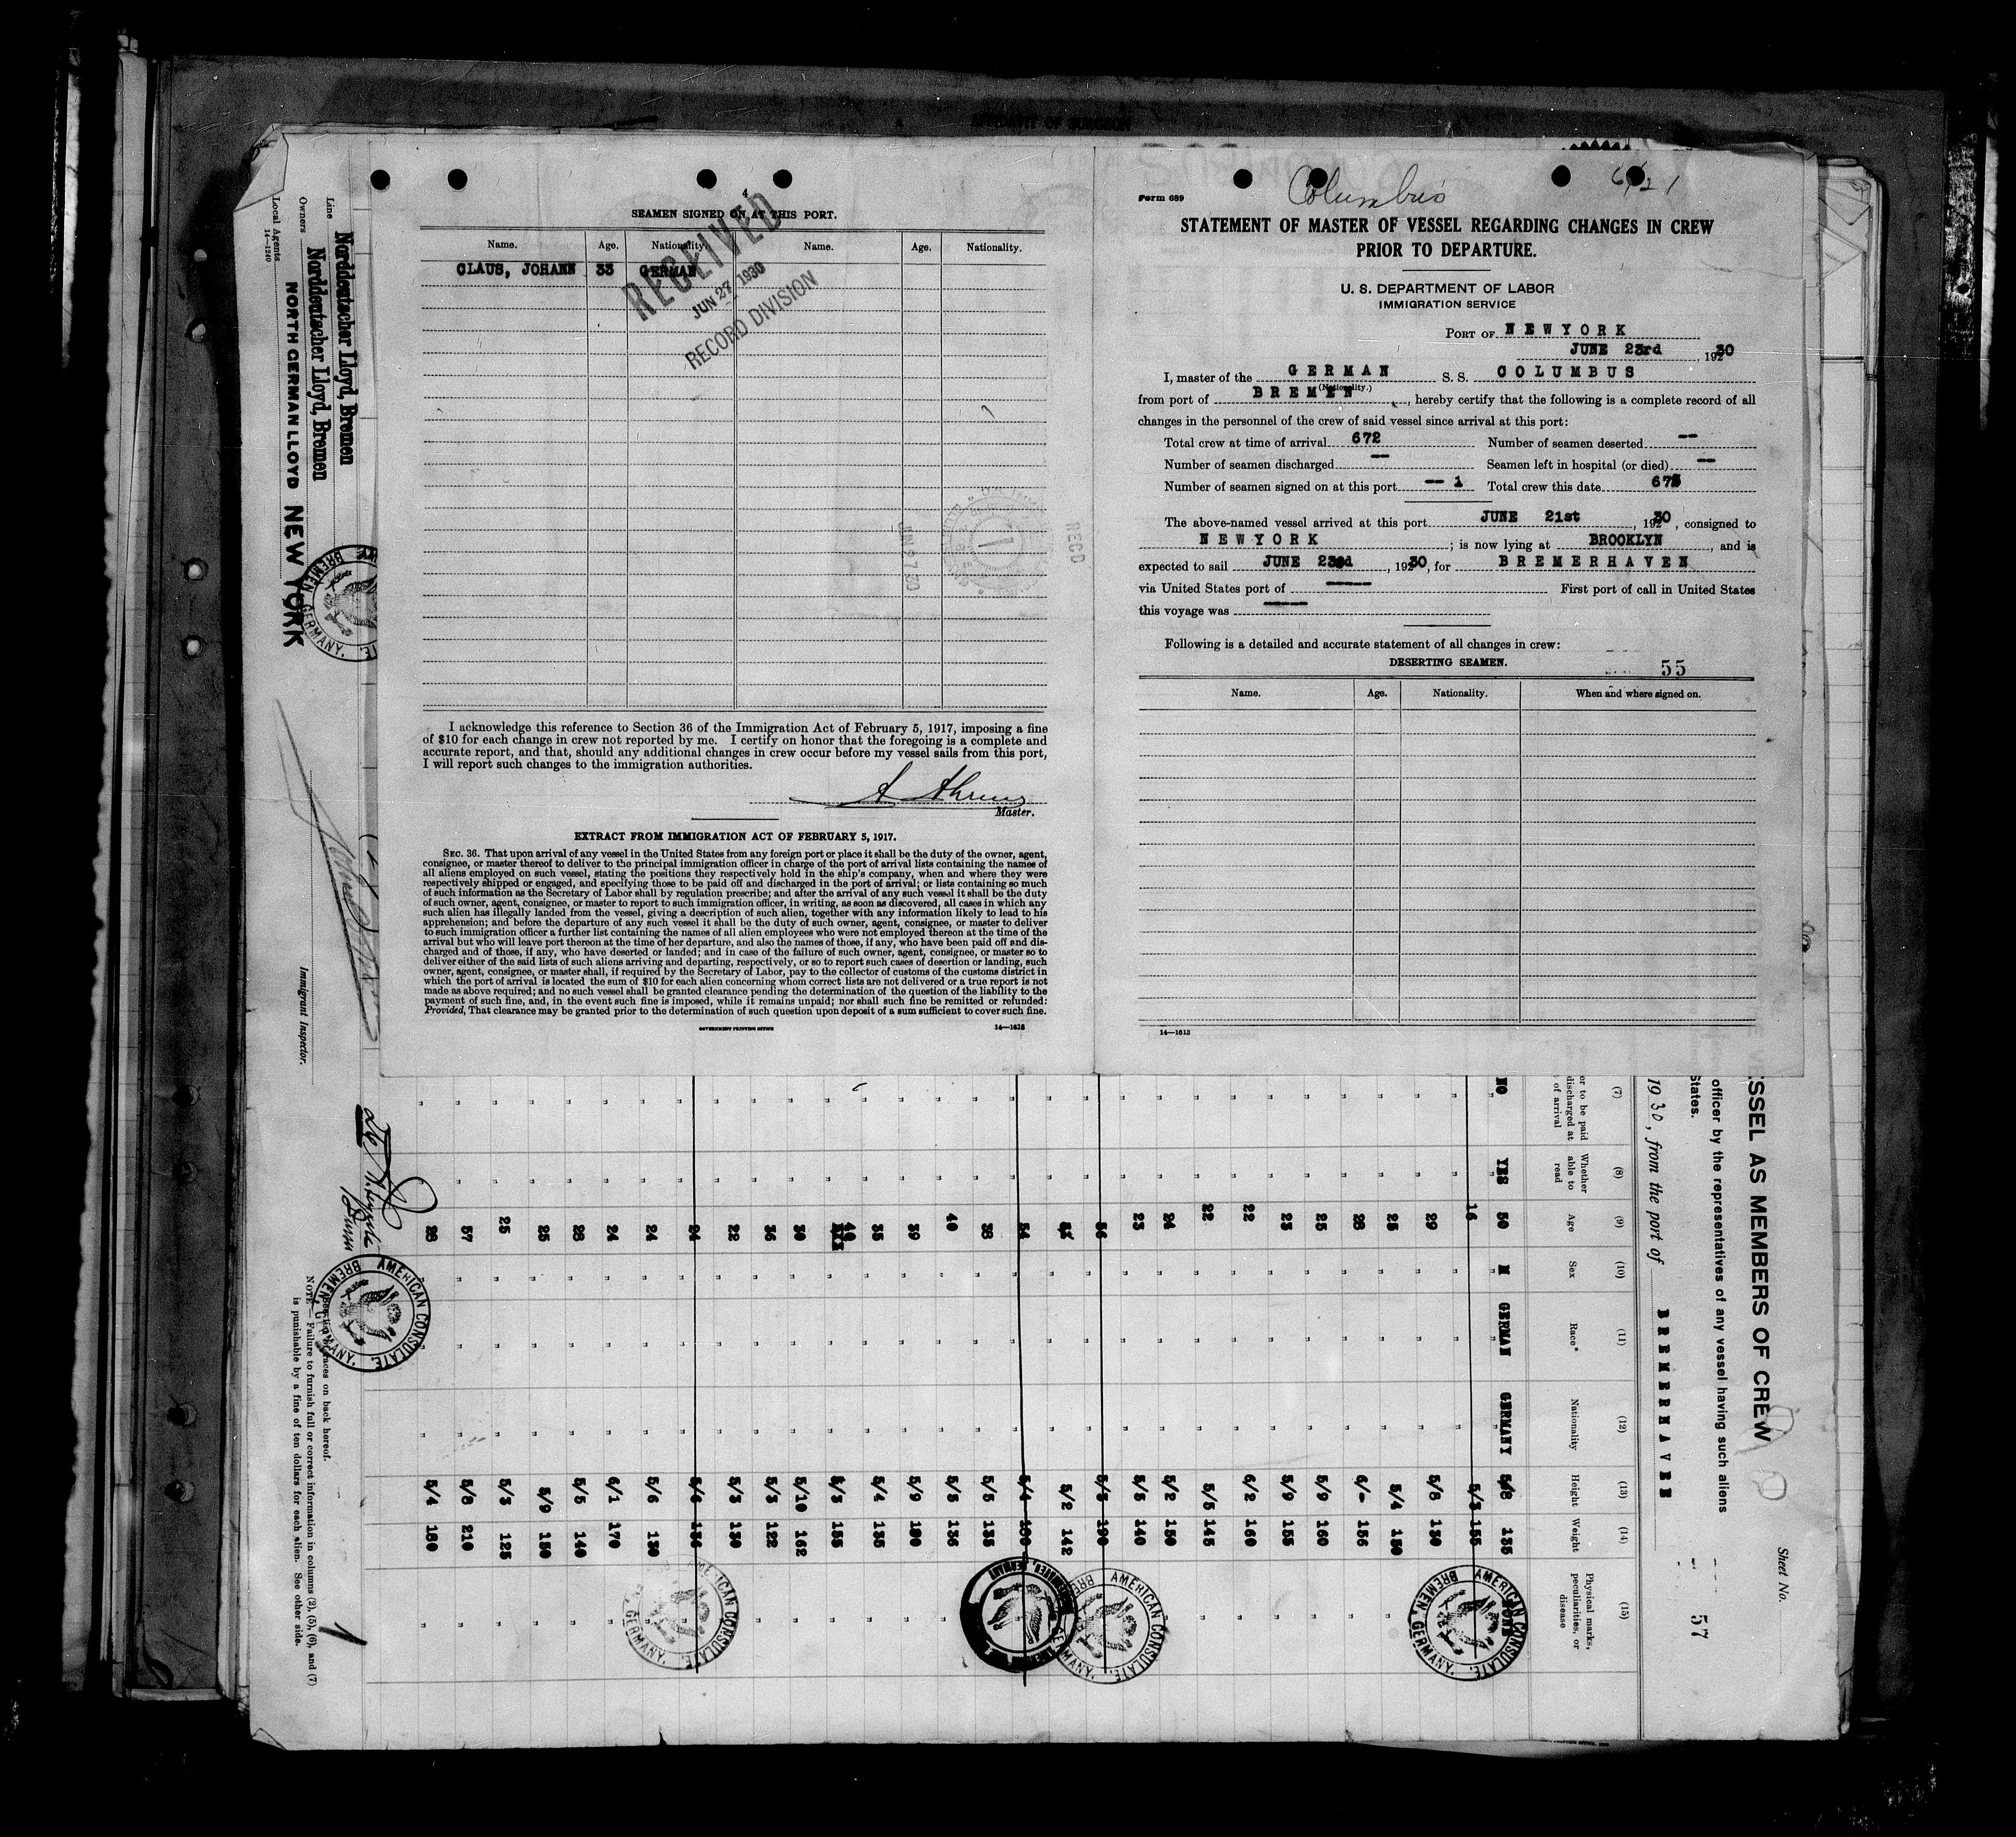 4
SEAMEN SIGNED ON AT THIS PORT.
Name. Age. Nationality. Name. Age. Nationality.
CLAUS, JOHANN 33 GERMAN
RECEIVED
JUN 27 1930
RECORD DIVISION
I acknowledge this reference to Section 36 of the Immigration Act of February 5, 1917, imposing a fine
of $10 for each change in crew not reported by me. I certify on honor that the foregoing is a complete and
accurate report, and that, should any additional changes in crew occur before my vessel sails from this port,
I will report such changes to the immigration authorities.
A Ahrens
Master.
EXTRACT FROM IMMIGRATION ACT OF FEBRUARY 5, 1917.
SEC. 36. That upon arrival of any vessel in the United States from any foreign port or place it shall be the duty of the owner, agent,
consignee, or master thereof to deliver to the principal immigration officer in charge of the port of arrival lists containing the names of
all aliens employed on such vessel, stating the positions they respectively hold in the ship's company, when and where they were
respectively shipped or engaged, and specifying those to be paid off and discharged in the port of arrival; or lists containing so much
of such information as the Secretary of Labor shall by regulation prescribe; and after the arrival of any such vessel it shall be the duty
of such owner, agent, consignee, or master to report to such immigration officer, in writing, as soon as discovered, all cases in which any
such alien has illegally landed from the vessel, giving a description of such alien, together with any information likely to lead to his
apprehension; and before the departure of any such vessel it shall be the duty of such owner, agent, consignee, or master to deliver
to such immigration officer a further list containing the names of all alien employees who were not employed thereon at the time of the
arrival but who will leave port thereon at the time of her departure, and also the names of those, if any, who have been paid off and dis-
charged and of those, if any, who have deserted or landed; and in case of the failure of such owner, agent, consignee, or master so to
deliver either of the said lists of such aliens arriving and departing, respectively, or so to report such cases of desertion or landing, such
owner, agent, consignee, or master shall, if required by the Secretary of Labor, pay to the collector of customs of the customs district in
which the port of arrival is located the sum of $10 for each alien concerning whom correct lists are not delivered or a true report is not
made as above required; and no such vessel shall be granted clearance pending the determination of the question of the liability to the
payment of such fine, and, in the event such fine is imposed, while it remains unpaid; nor shall such fine be remitted or refunded:
Provided, That clearance may be granted prior to the determination of such question upon deposit of a sum sufficient to cover such fine.
GOVERNMENT PRINTING OFFICE 14—1613
Columbus 6/21
Form 689
STATEMENT OF MASTER OF VESSEL REGARDING CHANGES IN CREW
PRIOR TO DEPARTURE.
U. S. DEPARTMENT OF LABOR
IMMIGRATION SERVICE
PORT OF NEWYORK
JUNE 23rd, 1930
I, master of the GERMAN S. S. COLUMBUS
(Nationality.)
from port of BREMEN, hereby certify that the following is a complete record of all
changes in the personnel of the crew of said vessel since arrival at this port:
Total crew at time of arrival 672 Number of seamen deserted --
Number of seamen discharged -- Seamen left in hospital (or died) --
Number of seamen signed on at this port -- 1 Total crew this date 673
The above-named vessel arrived at this port JUNE 21st, 1930, consigned to
NEWYORK; is now lying at BROOKLYN, and is
expected to sail JUNE 23rd, 1930, for BREMERHAVEN
via United States port of ---- First port of call in United States
this voyage was ----
Following is a detailed and accurate statement of all changes in crew:
DESERTING SEAMEN. 55
Name. Age. Nationality. When and where signed on.
14—1613
Line Norddeutscher Lloyd, Bremen
Owners Norddeutscher Lloyd, Bremen
Local Agents NORTH GERMAN LLOYD NEW YORK
14—1240
Immigrant Inspector.
SSEL AS MEMBERS OF CREW
officer by the representatives of any vessel having such aliens
States.
1930, from the port of BREMERHAVEN
Sheet No.
57
(7) (8) (9) (10) (11) (12) (13) (14) (15)
er to be paid discharged at of arrival
Whether able to read
Age
Sex
Race*
Nationality
Height
Weight
Physical marks, peculiarities, or disease
NO YES 50 M GERMAN GERMANY 5/8 135 NONE
16 5/3 155
29 5/8 130
25 5/4 130
28 6/- 156
25 5/9 160
23 5/9 155
22 6/2 160
22 5/5 145
24 5/2 150
23 5/5 140
56 5/3 190
5/2 142
54 5/4
38 5/5 135
40 5/5 136
39 5/9 190
35 5/4 135
5/3 155
30 5/10 162
36 5/3 122
22 5/3 130
24 5/6
24 5/6 130
24 6/1 170
28 5/5 140
25 5/9 150
25 5/3 125
57 5/8 210
28 5/4 180
AMERICAN CONSULATE.
BREMEN, GERMANY.
races on back hereof.
NOTE.—Failure to furnish full or correct information in columns (2), (5), (6), and (7)
is punishable by a fine of ten dollars for each alien. See other side.